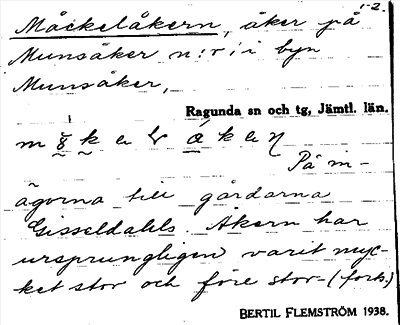 1-2.
Måckelåkern, åker på
Munsåker n:r 1 i byn
Munsåker,
Ragunda sn och tg, Jämtl. län.
På in-
ägorna till gårdarna
Gisseldahls. Åkern har
ursprungligen varit myc-
ket stor och före stor- (forts.)
BERTIL FLEMSTRÖM 1938.